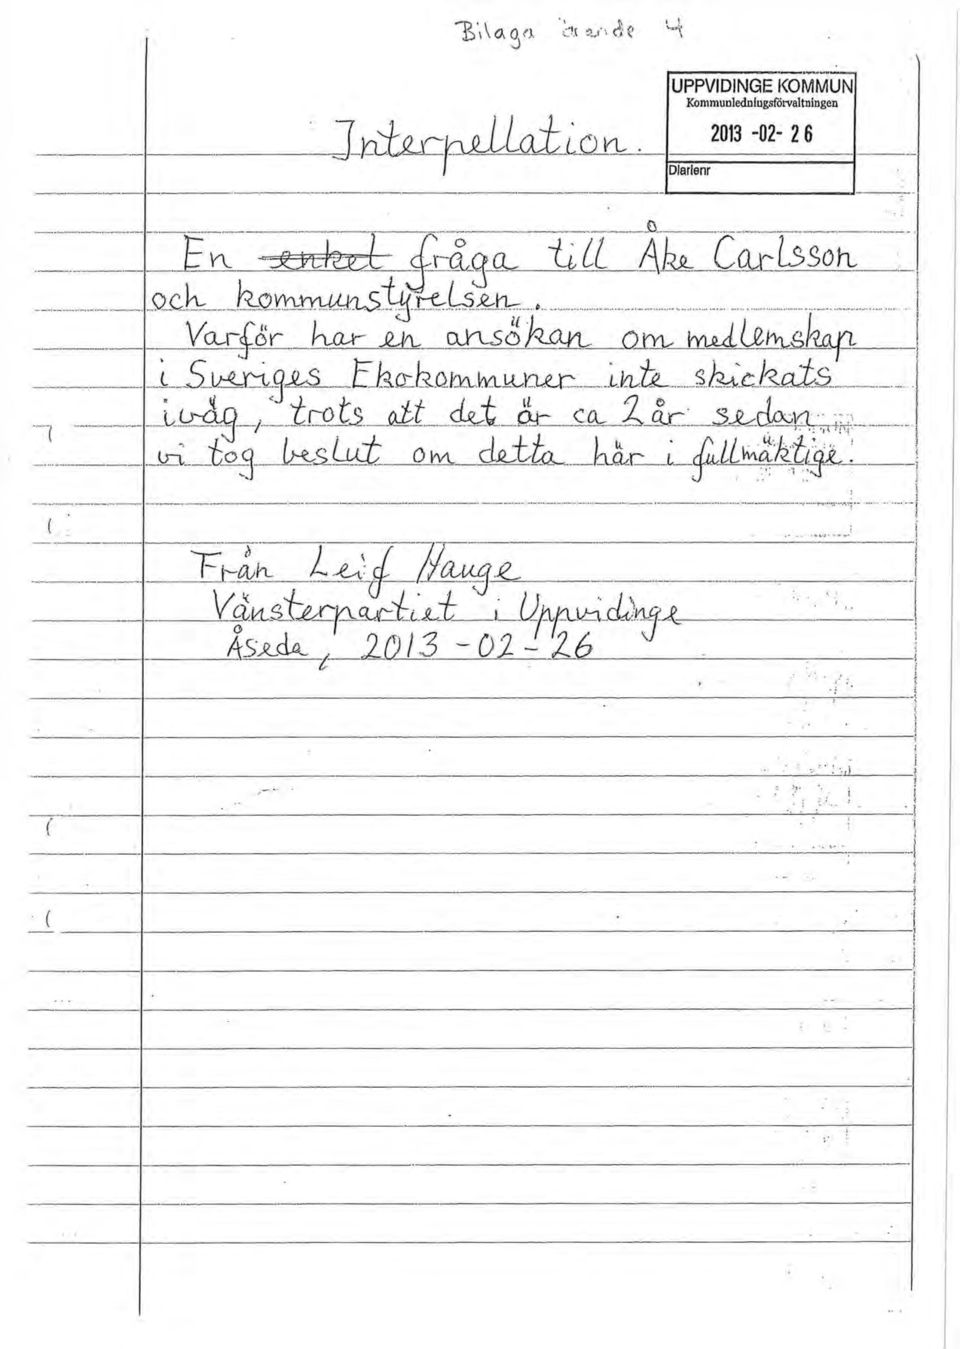 Bilaga ärende 4
UPPVIDINGE KOMMUN
Kommunledningsförvaltningen
2013 -02- 26
Diarienr
Interpellation.
En enkel fråga till Åke Carlsson
och kommunstyrelsen.
Varför har en ansökan om medlemskap
i Sveriges Ekokommuner inte skickats
iväg, trots att det är ca 2 år sedan
vi tog beslut om detta här i fullmäktige.
Från Leif Hauge
Vänsterpartiet i Uppvidinge
Åseda, 2013-02-26